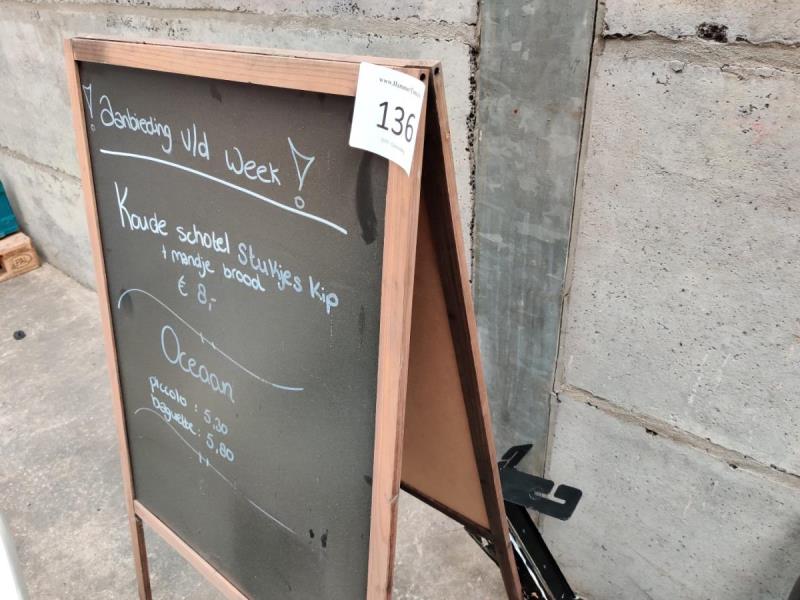 ! Aanbieding v/d Week !
Koude schotel Stukjes Kip
+ mandje brood
€ 8,-
Oceaan
piccolo : 5,30
baguette : 5,80
136